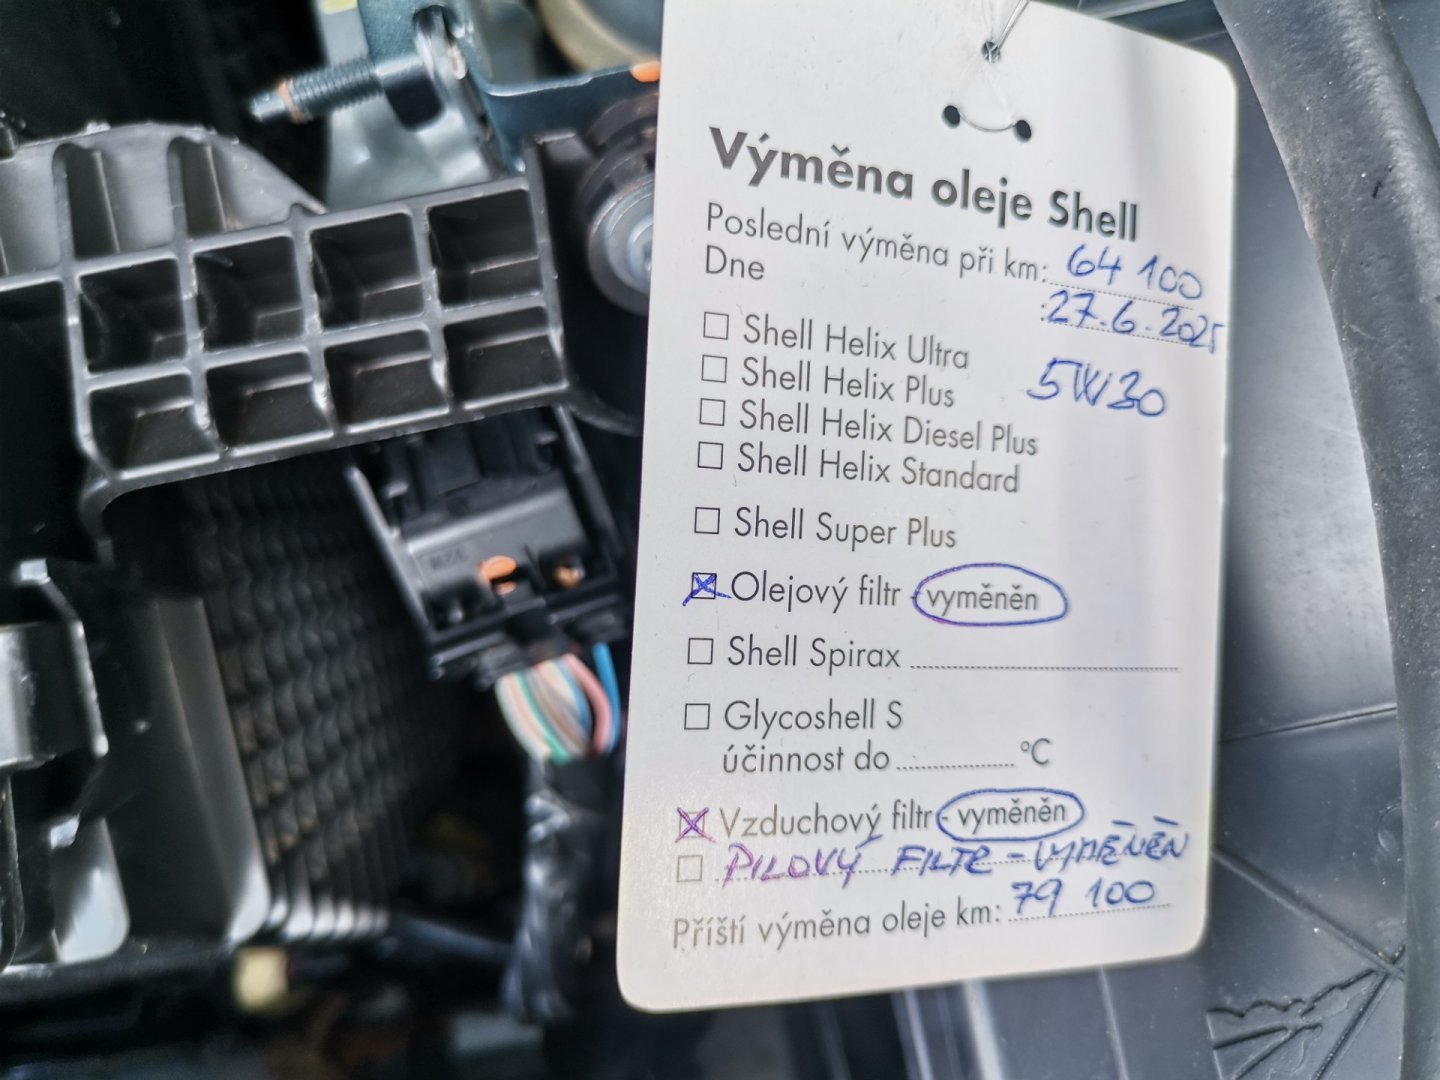 Výměna oleje Shell
Poslední výměna při km: 64 100
Dne 27.6.2025
Shell Helix Ultra
5W30
Shell Helix Plus
Shell Helix Diesel Plus
Shell Helix Standard
Shell Super Plus
Olejový filtr - vyměněn
Shell Spirax
Glycoshell S
účinnost do °C
Vzduchový filtr - vyměněn
PILOVÝ FILTR - VYMĚNĚN
Příští výměna oleje km: 79 100